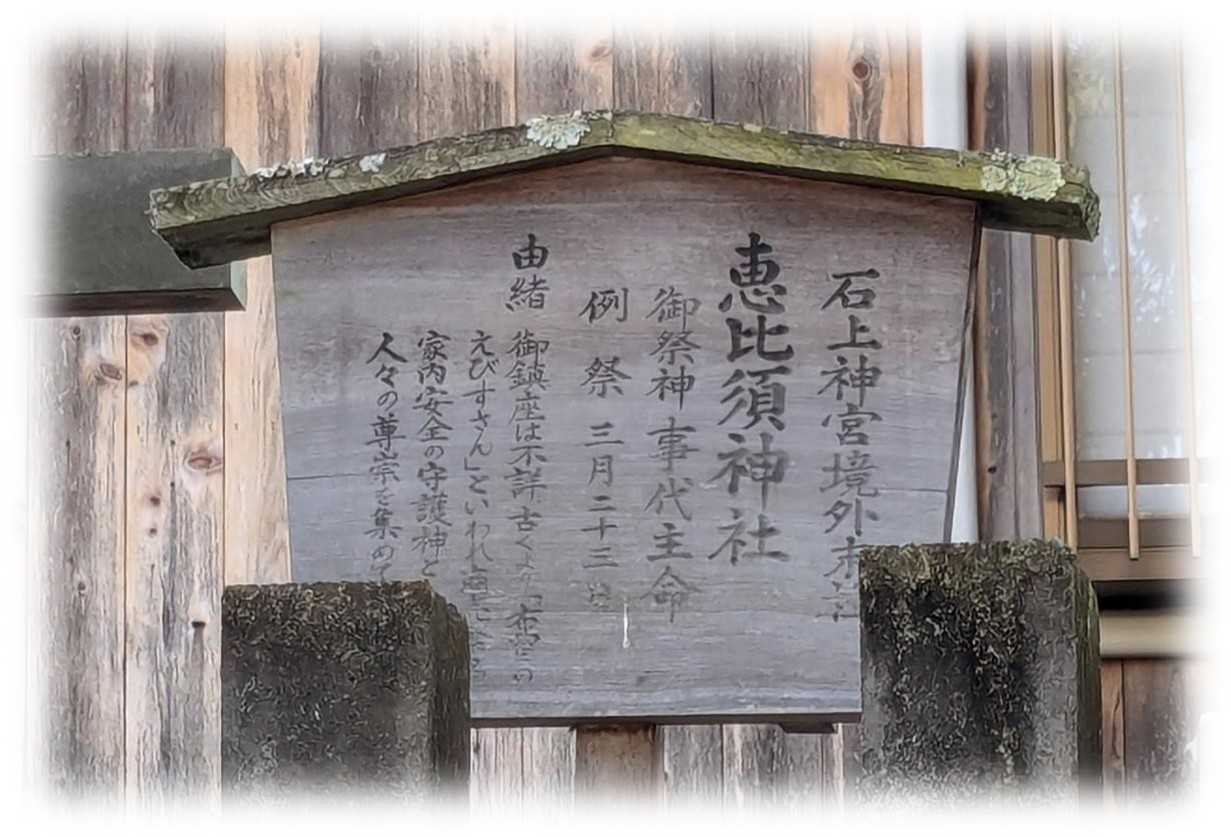 石上神宮境外末社
恵比須神社
御祭神事代主命
例祭 三月二十三
由緒 御鎮座は不詳古くより「布留の
えびすさん」といわれ
家内安全の守護神と
人々の尊崇を集めて